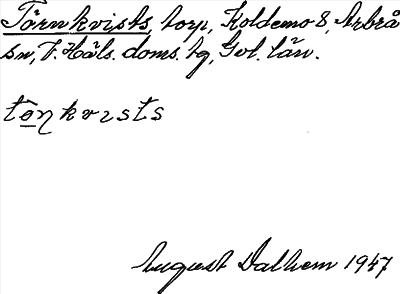 Törnkvists, torp, Koldemo 8, Arbrå
sn, V. Häls. doms. tg, Gvl. län.
tö̲ɳkvɪsts
August Dalhem 1947